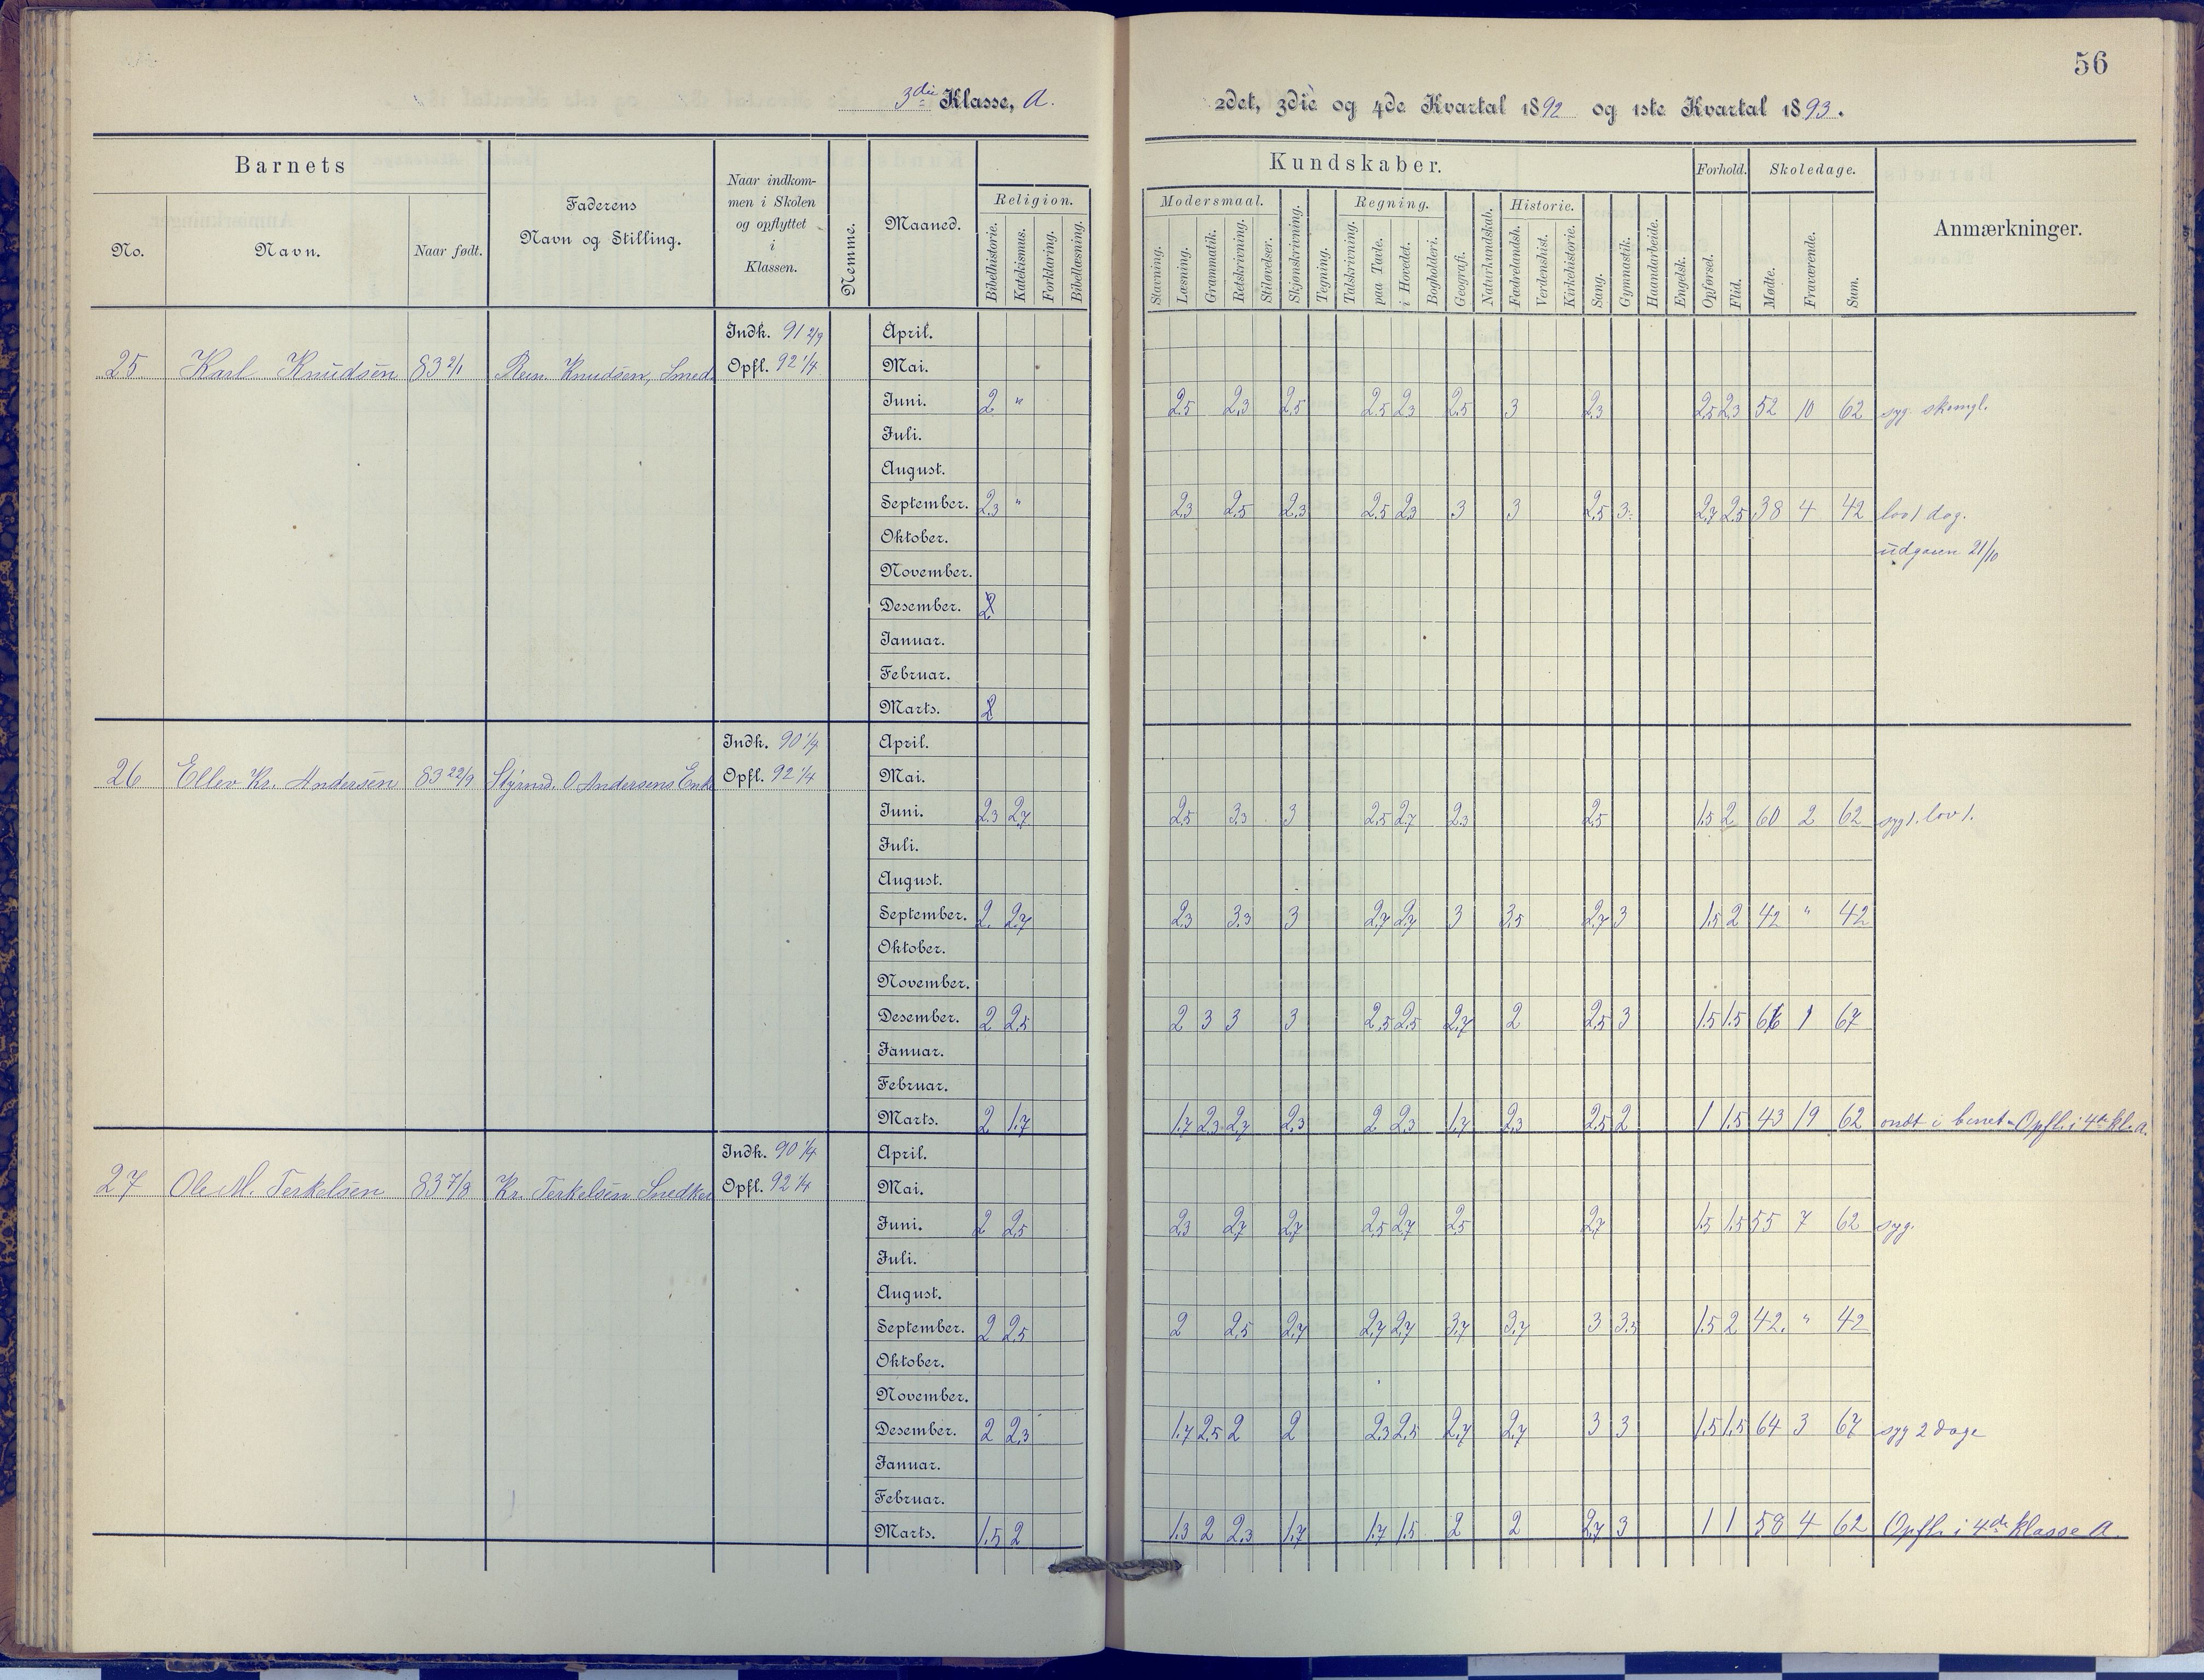 56
3die Klasse, A.
2det, 3die og 4de Kvartal 1892 og 1ste Kvartal 1893.
Barnets
No.
Navn.
Naar født.
Faderens
Navn og Stilling.
Naar indkom-
men i Skolen
og opflyttet
i
Klassen.
Nemme.
Maaned.
Kundskaber.
Religion.
Bibelhistorie.
Katekismus.
Forklaring.
Bibellæsning.
Modersmaal.
Stavning.
Læsning.
Grammatik.
Retskrivning.
Stiløvelser.
Skjønskrivning.
Tegning.
Regning.
Talskrivning.
paa Tavle.
i Hovedet.
Bogholderi.
Geografi.
Naturkundskab.
Historie.
Fædrelandsh.
Verdenshist.
Kirkehistorie.
Sang.
Gymnastik.
Haandarbeide.
Engelsk.
Forhold.
Opførsel.
Flid.
Skoledage.
Møde.
Fraværende.
Sum.
Anmærkninger.
Indk. 91 2/9 April.
25 Karl Knudsen 83 2/1 Knudsen, Smed Opfl. 92 1/4 Mai.
Juni. 2 " 2,5 2,3 2,5 2,5 2,3 2,5 3 2,3 2,5 2,3 52 10 62 syg.
Juli.
August.
September. 2,3 " 2,3 2,5 2,3 2,5 2,3 3 3 2,5 3 2,7 2,5 38 4 42 lov 1 dag.
Oktober. udgaaen 21/10
November.
Desember. 2
Januar.
Februar.
Marts. 2
Indk. 90 1/9 April.
26 Ellev Kr. Andersen 83 22/9 Styrmd. O Andersens Enke Opfl. 92 1/4 Mai.
Juni. 2,3 2,7 2,5 3,3 3 2,5 2,7 2,3 2,5 1,5 2 60 2 62 syg 1. lov 1.
Juli.
August.
September. 2 2,7 2,3 3,3 3 2,7 2,7 3 3,5 2,7 3 1,5 2 42 " 42
Oktober.
November.
Desember. 2 2,5 2 3 3 3 2,5 2,5 2,7 2 2,5 3 1,5 1,5 66 1 67
Januar.
Februar.
Marts. 2 1,7 1,7 2,3 2,7 2,3 2 2,3 1,7 2,3 2,5 2 1 1,5 43 19 62 ondt i benet. Opfl. i 4de kl. A.
Indk. 90 1/4 April.
27 Ole M. Terkelsen 83 7/8 Kr. Terkelsen Snedker Opfl. 92 1/4 Mai.
Juni. 2 2,5 2,3 2,7 2,7 2,5 2,7 2,5 2,7 1,5 1,5 55 7 62 syg.
Juli.
August.
September. 2 2,5 2 2,5 2,7 2,7 2,7 3,7 3,7 3 3,5 1,5 2 42. " 42
Oktober.
November.
Desember. 2 2,3 1,7 2,5 2 2 2,3 2,5 2,7 2,7 3 3 1,5 1,5 64 3 67 syg 2 dage
Januar.
Februar.
Marts. 1,5 2 1,3 2 2,3 1,7 1,7 1,5 2 2 2,7 3 1 1 58 4 62 Opfl. i 4de klasse A.